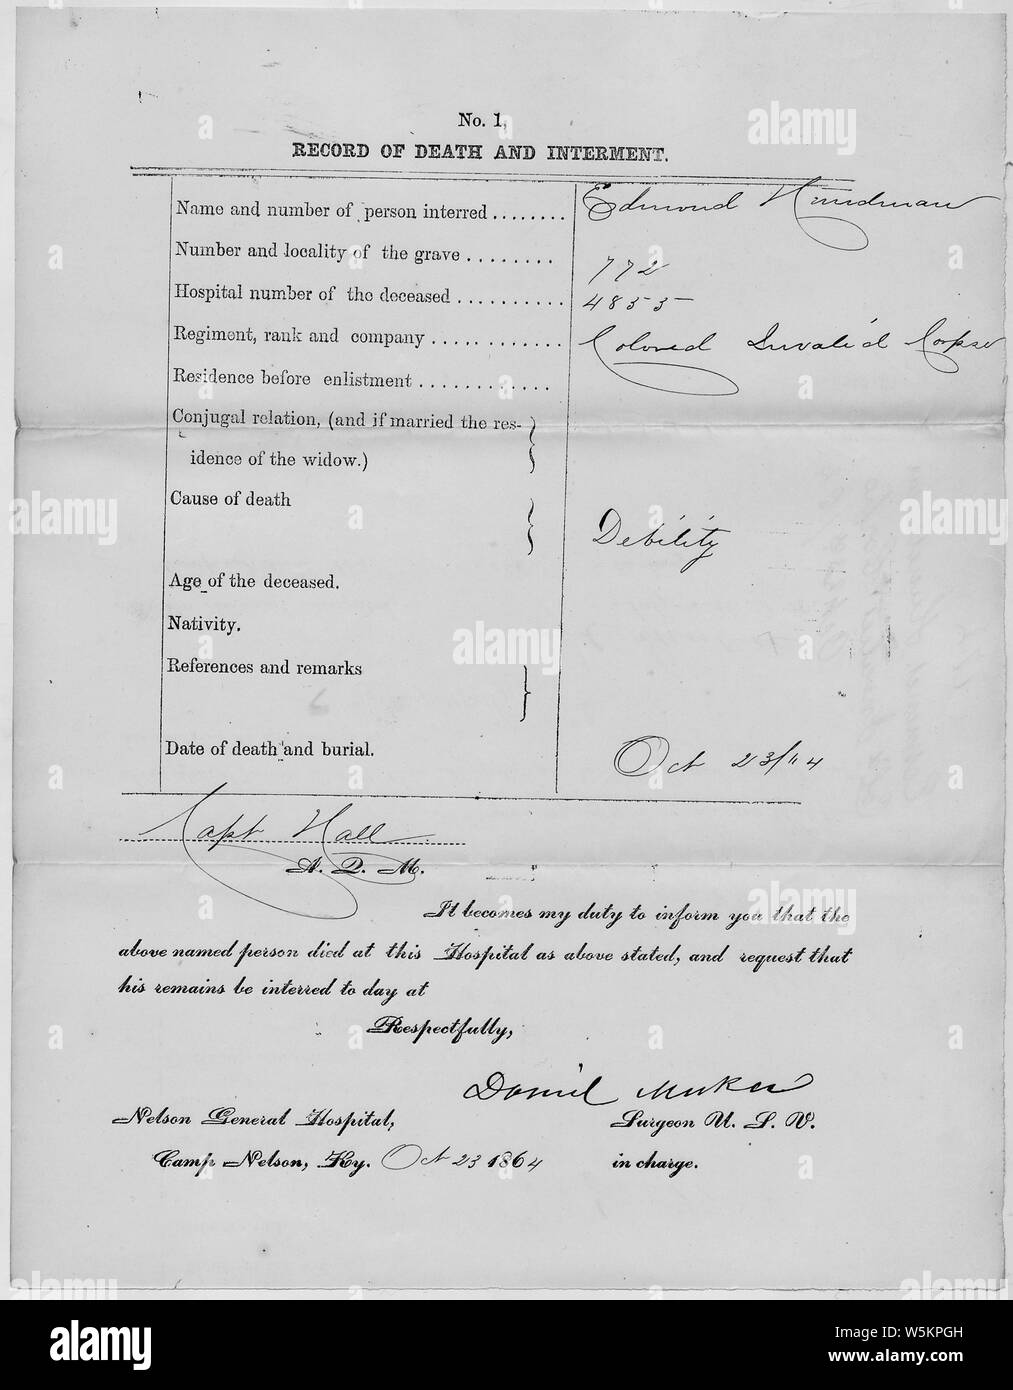 No. 1,
RECORD OF DEATH AND INTERMENT.
Name and number of person interred ........ Edmond
Number and locality of the grave ........ 772
Hospital number of the deceased .......... 4855
Regiment, rank and company ............ Colored Invalid Corps
Residence before enlistment ............
Conjugal relation, (and if married the res-
idence of the widow.)
Cause of death Debility
Age of the deceased.
Nativity.
References and remarks
Date of death and burial. Oct 23/64
Capt Hall
A. Q. M.
It becomes my duty to inform you that the
above named person died at this Hospital as above stated, and request that
his remains be interred to day at
Respectfully,
Daniel
Nelson General Hospital, Surgeon U. S. V.
Camp Nelson, Ky. Oct 23 1864 in charge.
alamy
Image ID: W5KPGH
www.alamy.com